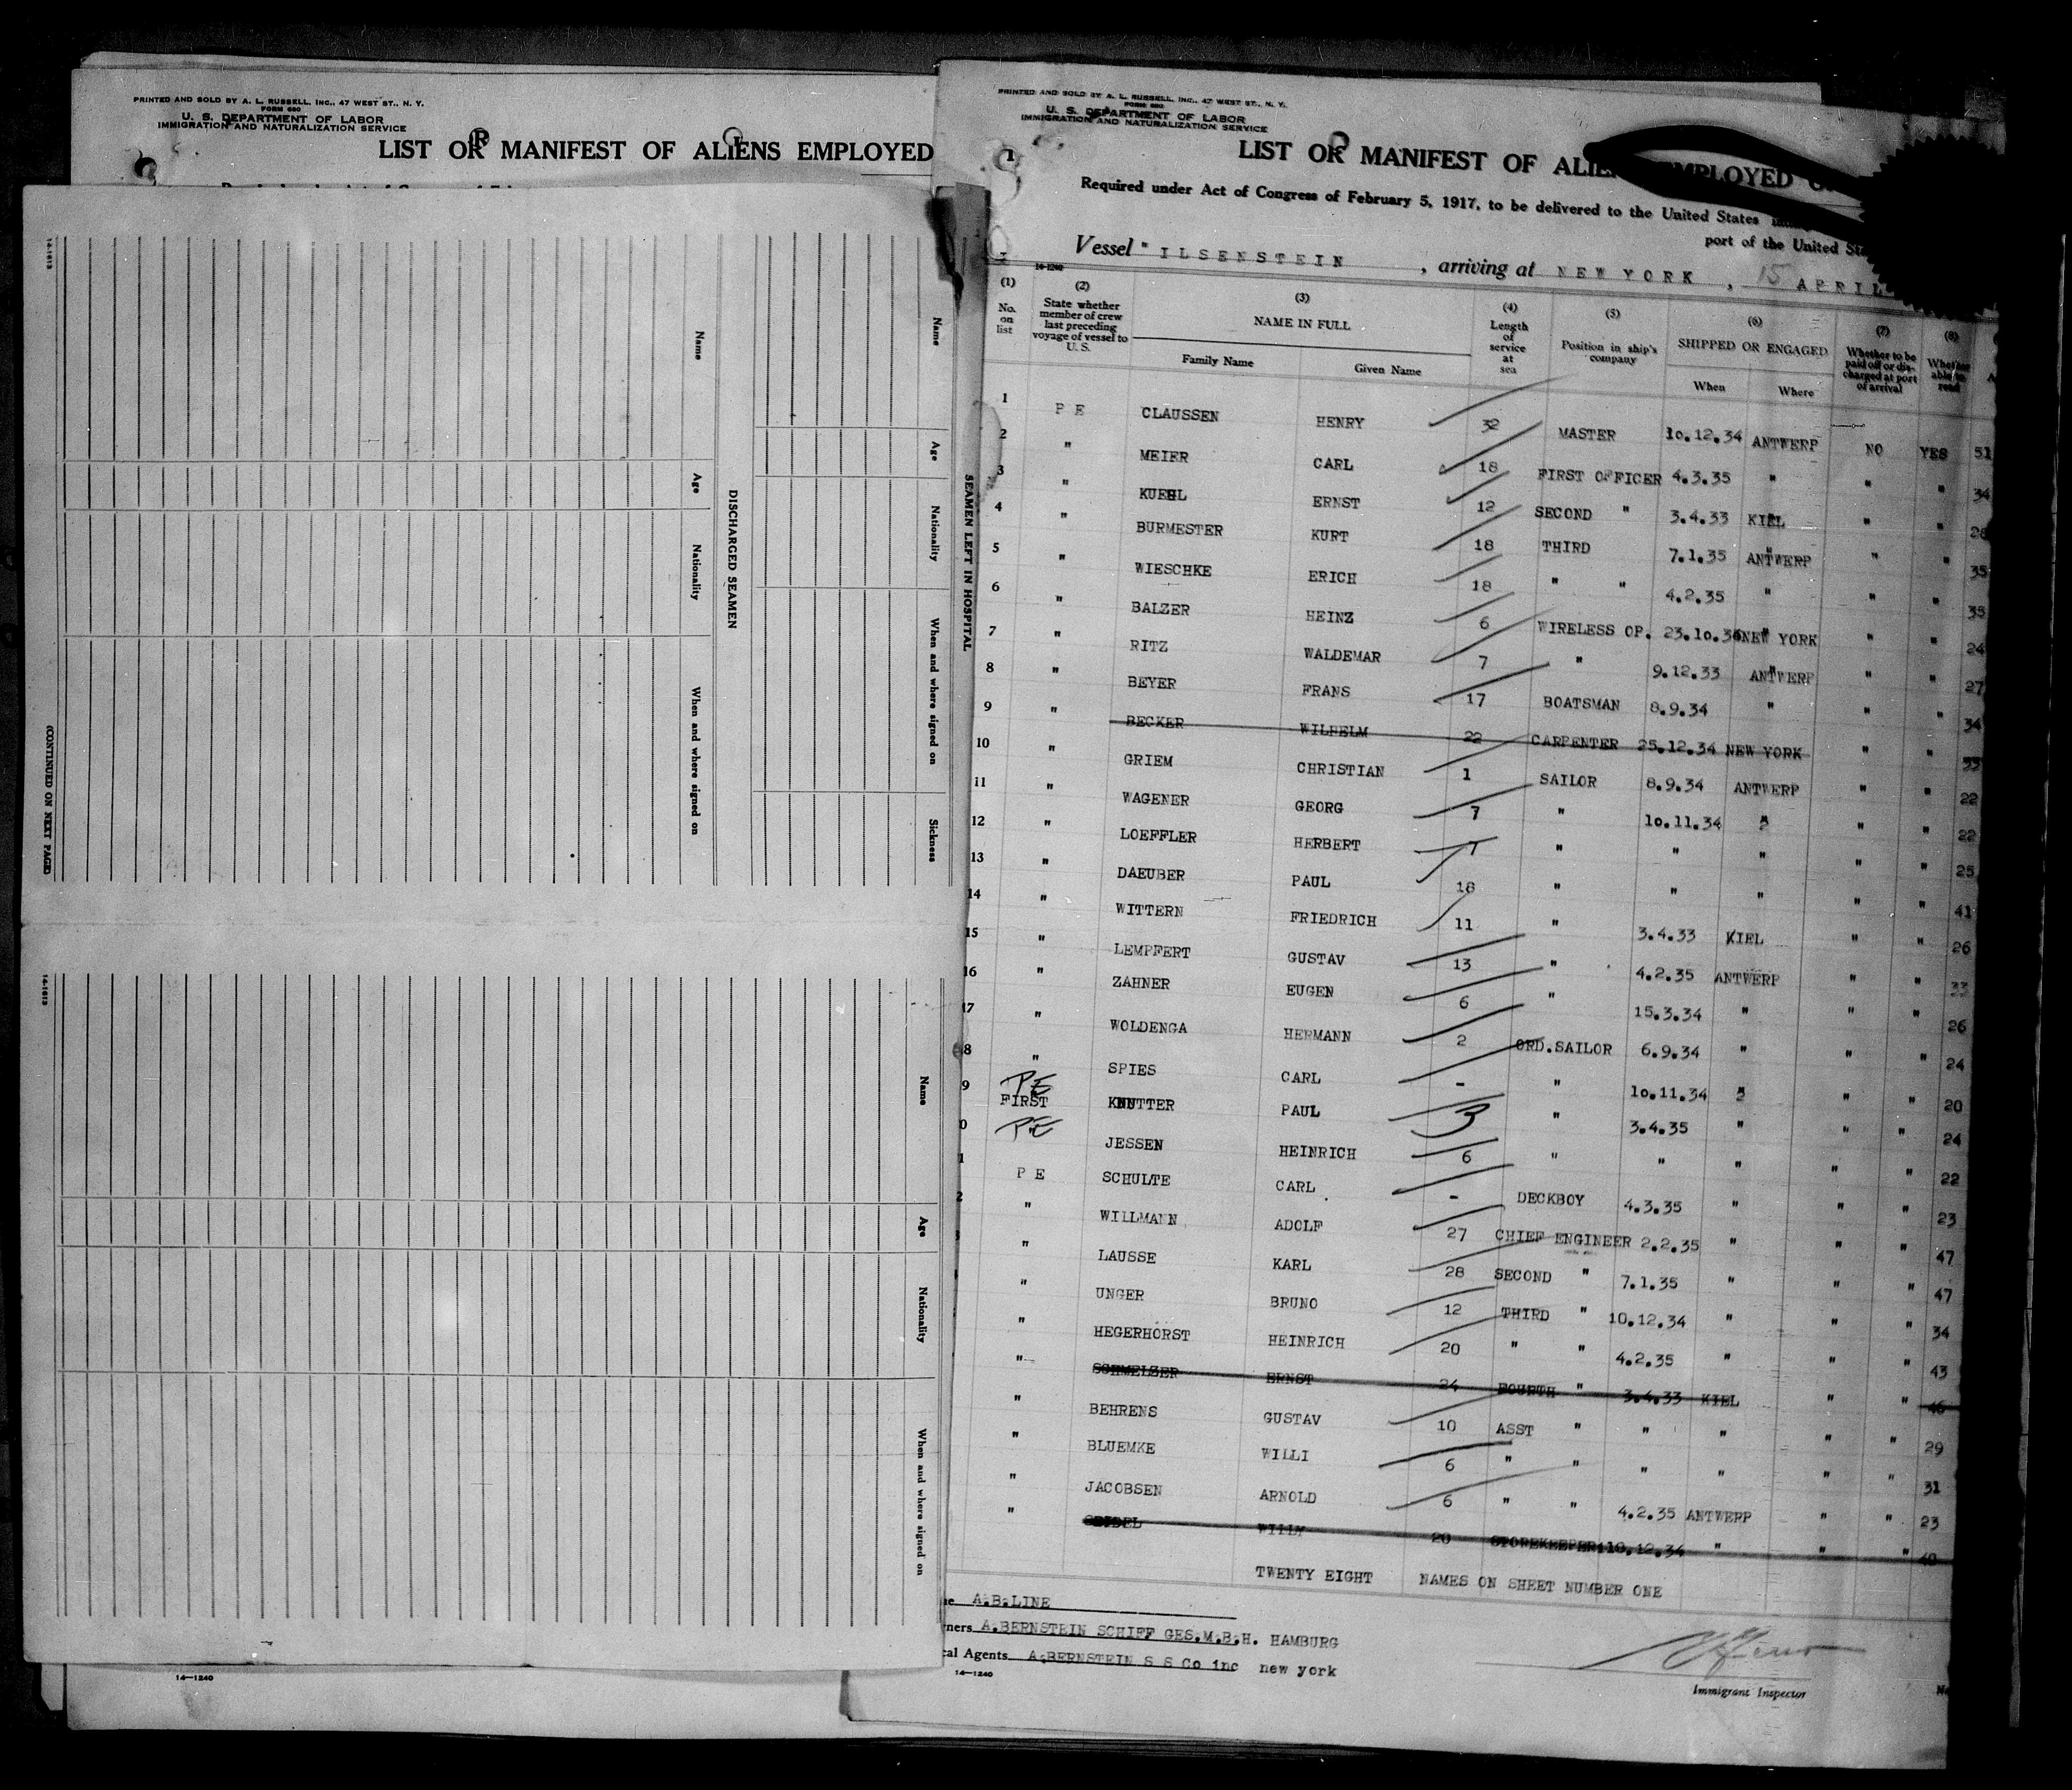 PRINTED AND SOLD BY A. L. RUSSELL, INC., 47 WEST ST., N. Y.
FORM 680
U. S. DEPARTMENT OF LABOR
IMMIGRATION AND NATURALIZATION SERVICE
LIST OR MANIFEST OF ALIENS EMPLOYED
14-1613
Name
Age
Nationality
When and where signed on
CONTINUED ON NEXT PAGE
DISCHARGED SEAMEN
Name
Age
Nationality
When and where signed on
Sickness
SEAMEN LEFT IN HOSPITAL
14-1613
Name
Age
Nationality
When and where signed on
14-1240
PRINTED AND SOLD BY A. L. RUSSELL, INC., 47 WEST ST., N. Y.
FORM 680
U. S. DEPARTMENT OF LABOR
IMMIGRATION AND NATURALIZATION SERVICE
1
LIST OR MANIFEST OF ALIENS EMPLOYED
Required under Act of Congress of February 5, 1917, to be delivered to the United States
port of the United
Vessel " ILSENSTEIN , arriving at NEW YORK , 15 APRIL
14-1240
(1) (2) (3) (4) (5) (6) (7) (8)
No. on list State whether member of crew last preceding voyage of vessel to U. S. NAME IN FULL Length of service at sea Position in ship's company SHIPPED OR ENGAGED Whether to be paid off or discharged at port of arrival Whether able to read
Family Name Given Name When Where
1 P E CLAUSSEN HENRY 32 MASTER 10.12.34 ANTWERP NO YES 51
2 " MEIER CARL 18 FIRST OFFICER 4.3.35 " " " 34
3 " KUEHL ERNST 12 SECOND " 3.4.33 KIEL " " 28
4 " BURMESTER KURT 18 THIRD " 7.1.35 ANTWERP " " 35
5 " WIESCHKE ERICH 18 " " 4.2.35 " " " 35
6 " BALZER HEINZ 6 WIRELESS OP. 23.10.34 NEW YORK " " 24
7 " RITZ WALDEMAR 7 " 9.12.33 ANTWERP " " 27
8 " BEYER FRANS 17 BOATSMAN 8.9.34 " " " 34
9 " BECKER WILHELM 22 CARPENTER 25.12.34 NEW YORK " "
10 " GRIEM CHRISTIAN 1 SAILOR 8.9.34 ANTWERP " " 22
11 " WAGENER GEORG 7 " 10.11.34 " " " 22
12 " LOEFFLER HERBERT 7 " " " " " 25
13 " DAEUBER PAUL 18 " " " " " 41
14 " WITTERN FRIEDRICH 11 " 3.4.33 KIEL " " 26
15 " LEMPFERT GUSTAV 13 " 4.2.35 ANTWERP " " 33
16 " ZAHNER EUGEN 6 " 15.3.34 " " " 26
17 " WOLDENGA HERMANN 2 ORD.SAILOR 6.9.34 " " " 24
8 " SPIES CARL - " 10.11.34 " " " 20
9 PE FIRST KNUTTER PAUL 3 " 3.4.35 " " " 24
0 PE JESSEN HEINRICH 6 " " " " " 22
1 P E SCHULTE CARL - DECKBOY 4.3.35 " " " 23
2 " WILLMANN ADOLF 27 CHIEF ENGINEER 2.2.35 " " " 47
" LAUSSE KARL 28 SECOND " 7.1.35 " " " 47
" UNGER BRUNO 12 THIRD " 10.12.34 " " " 34
" HEGERHORST HEINRICH 20 " " 4.2.35 " " " 43
" SCHMELZER ERNST 24 FOURTH " 3.4.33 KIEL " " 46
" BEHRENS GUSTAV 10 ASST " " " " " 29
" BLUEMKE WILLI 6 " " " " " " 31
" JACOBSEN ARNOLD 6 " " 4.2.35 ANTWERP " " 23
" WILLY 20 STOREKEEPER 10.12.34 " " " 40
TWENTY EIGHT NAMES ON SHEET NUMBER ONE
A.B.LINE
ners A.BERNSTEIN SCHIFF GES.M.B.H. HAMBURG
cal Agents A.BERNSTEIN S S Co inc new york
14-1240
Immigrant Inspector